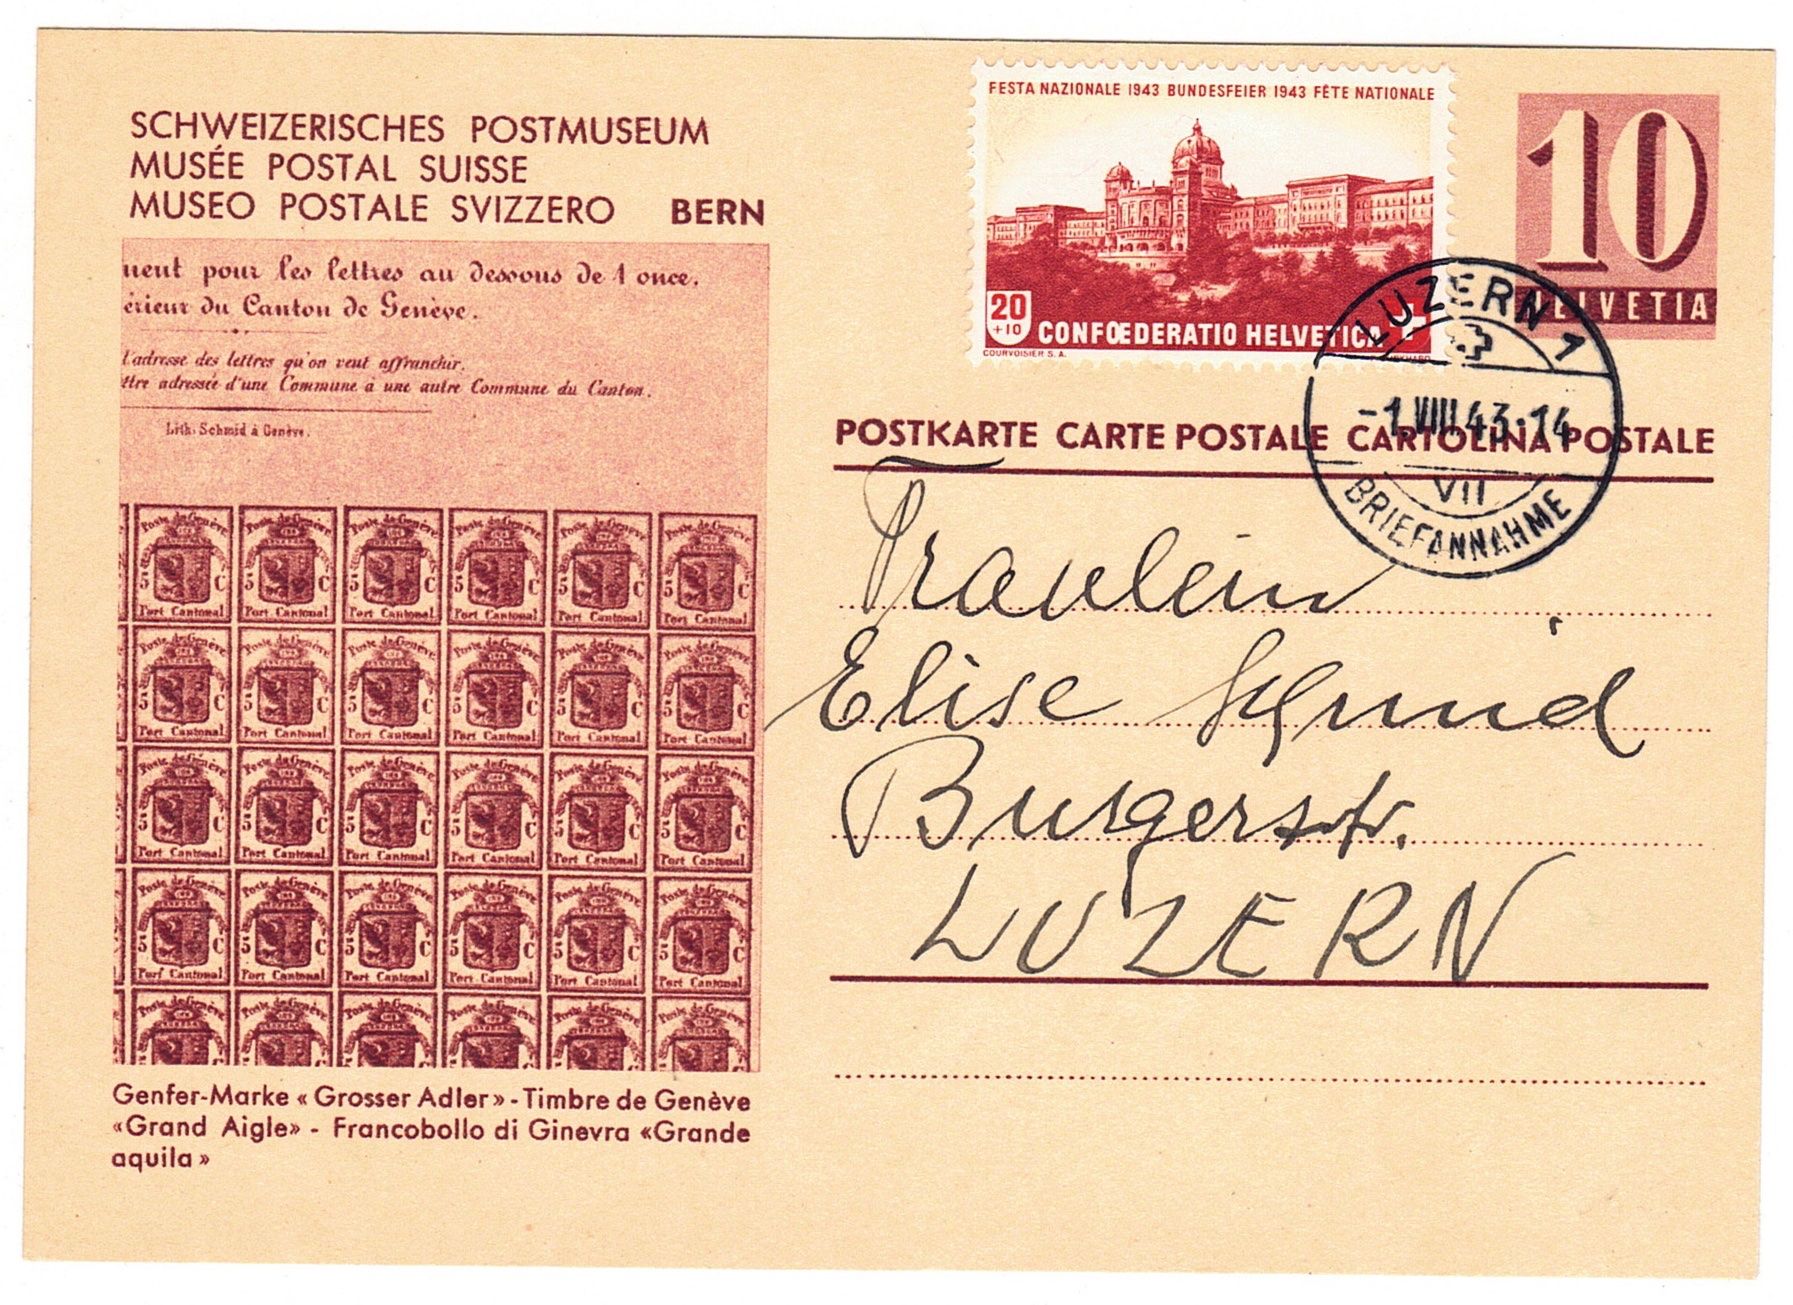 SCHWEIZERISCHES POSTMUSEUM
MUSÉE POSTAL SUISSE
MUSEO POSTALE SVIZZERO BERN
ment pour les lettres au dessous de 1 once.
érieur du Canton de Genève.
l'adresse des lettres qu'on veut affranchir.
ttre adressée d'une Commune à une autre Commune du Canton.
Lith. Schmid à Genève.
Poste de Genève
5 C
Port Cantonal
Genfer-Marke « Grosser Adler » - Timbre de Genève
«Grand Aigle» - Francobollo di Ginevra «Grande
aquila »
FESTA NAZIONALE 1943 BUNDESFEIER 1943 FÊTE NATIONALE
20
+10
CONFŒDERATIO HELVETICA
COURVOISIER S. A.
10
HELVETIA
LUZERN 1
-1.VIII.43-14
VII
BRIEFANNAHME
POSTKARTE CARTE POSTALE CARTOLINA POSTALE
Fraulein
Elise Schmid
Burgerstr.
LUZERN